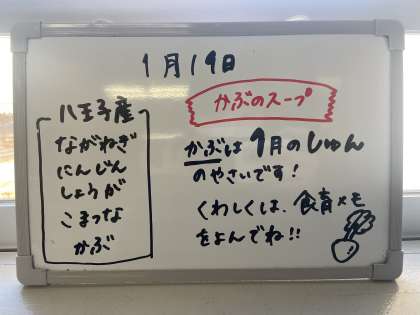 1月19日
八王子産
ながねぎ
にんじん
しょうが
こまつな
かぶ
かぶのスープ
かぶは1月のしゅん
のやさいです!
くわしくは、食育メモ
をよんでね!!